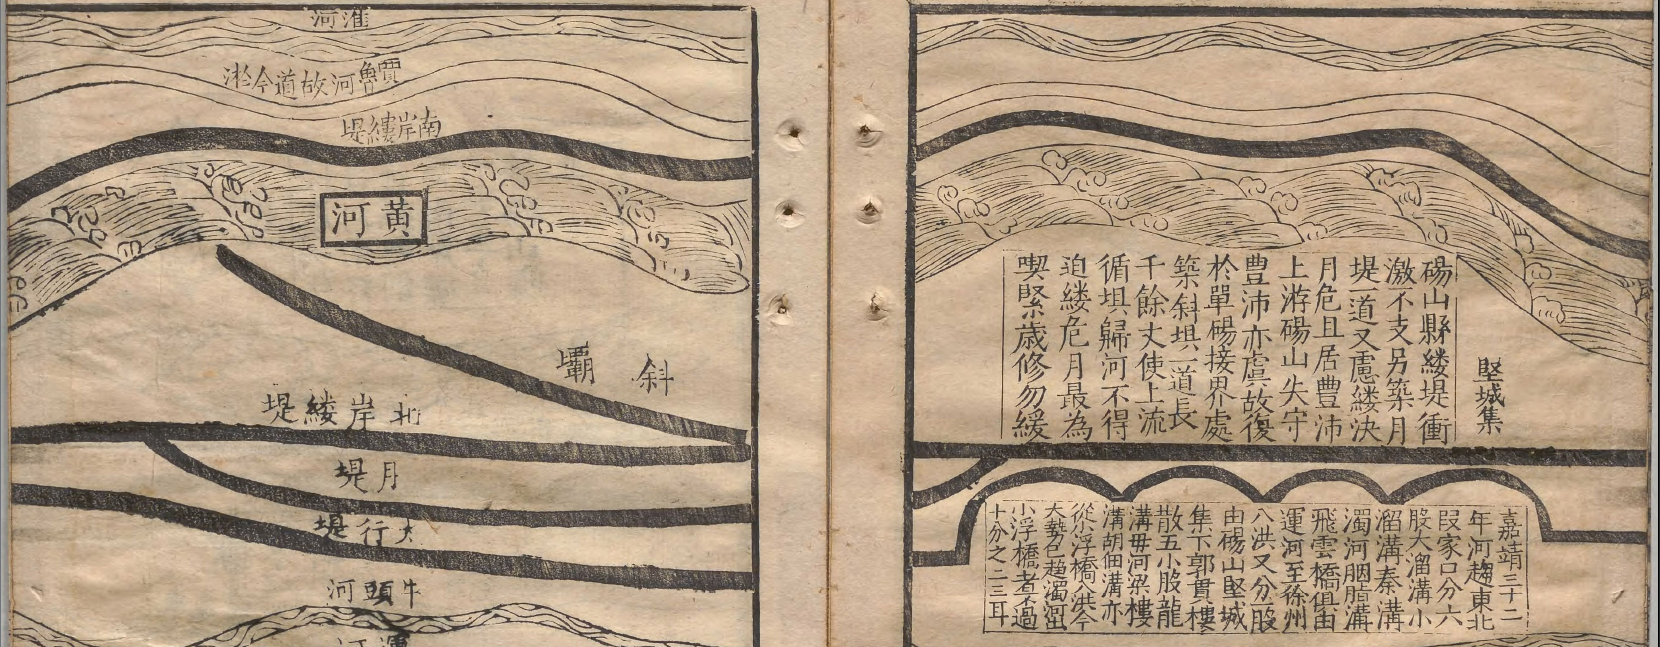 堅城集
碭山縣縷堤衝
激不支另築月
堤一道又慮縷決
月危且居豐沛
上游碭山失守
豐沛亦虞故復
於單碭接界處
築斜埧一道長
千餘丈使上流
循埧歸河不得
迫縷危月最為
喫緊歲修勿緩
嘉靖三十二
年河趨東北
叚家口分六
股大溜溝小
溜溝秦溝
濁河胭脂溝
飛雲橋俱由
運河至徐州
入洪又分一股
由碭山堅城
集下郭貫樓
散五小股龍
溝毋河梁樓
溝胡佃溝亦
從小浮橋洪今
大勢已趨濁河出
小浮橋者不過
十分之二三耳
淮河
賈魯河故道今淤
南岸縷堤
黃河
斜壩
北岸縷堤
月堤
太行堤
牛頭河
運河